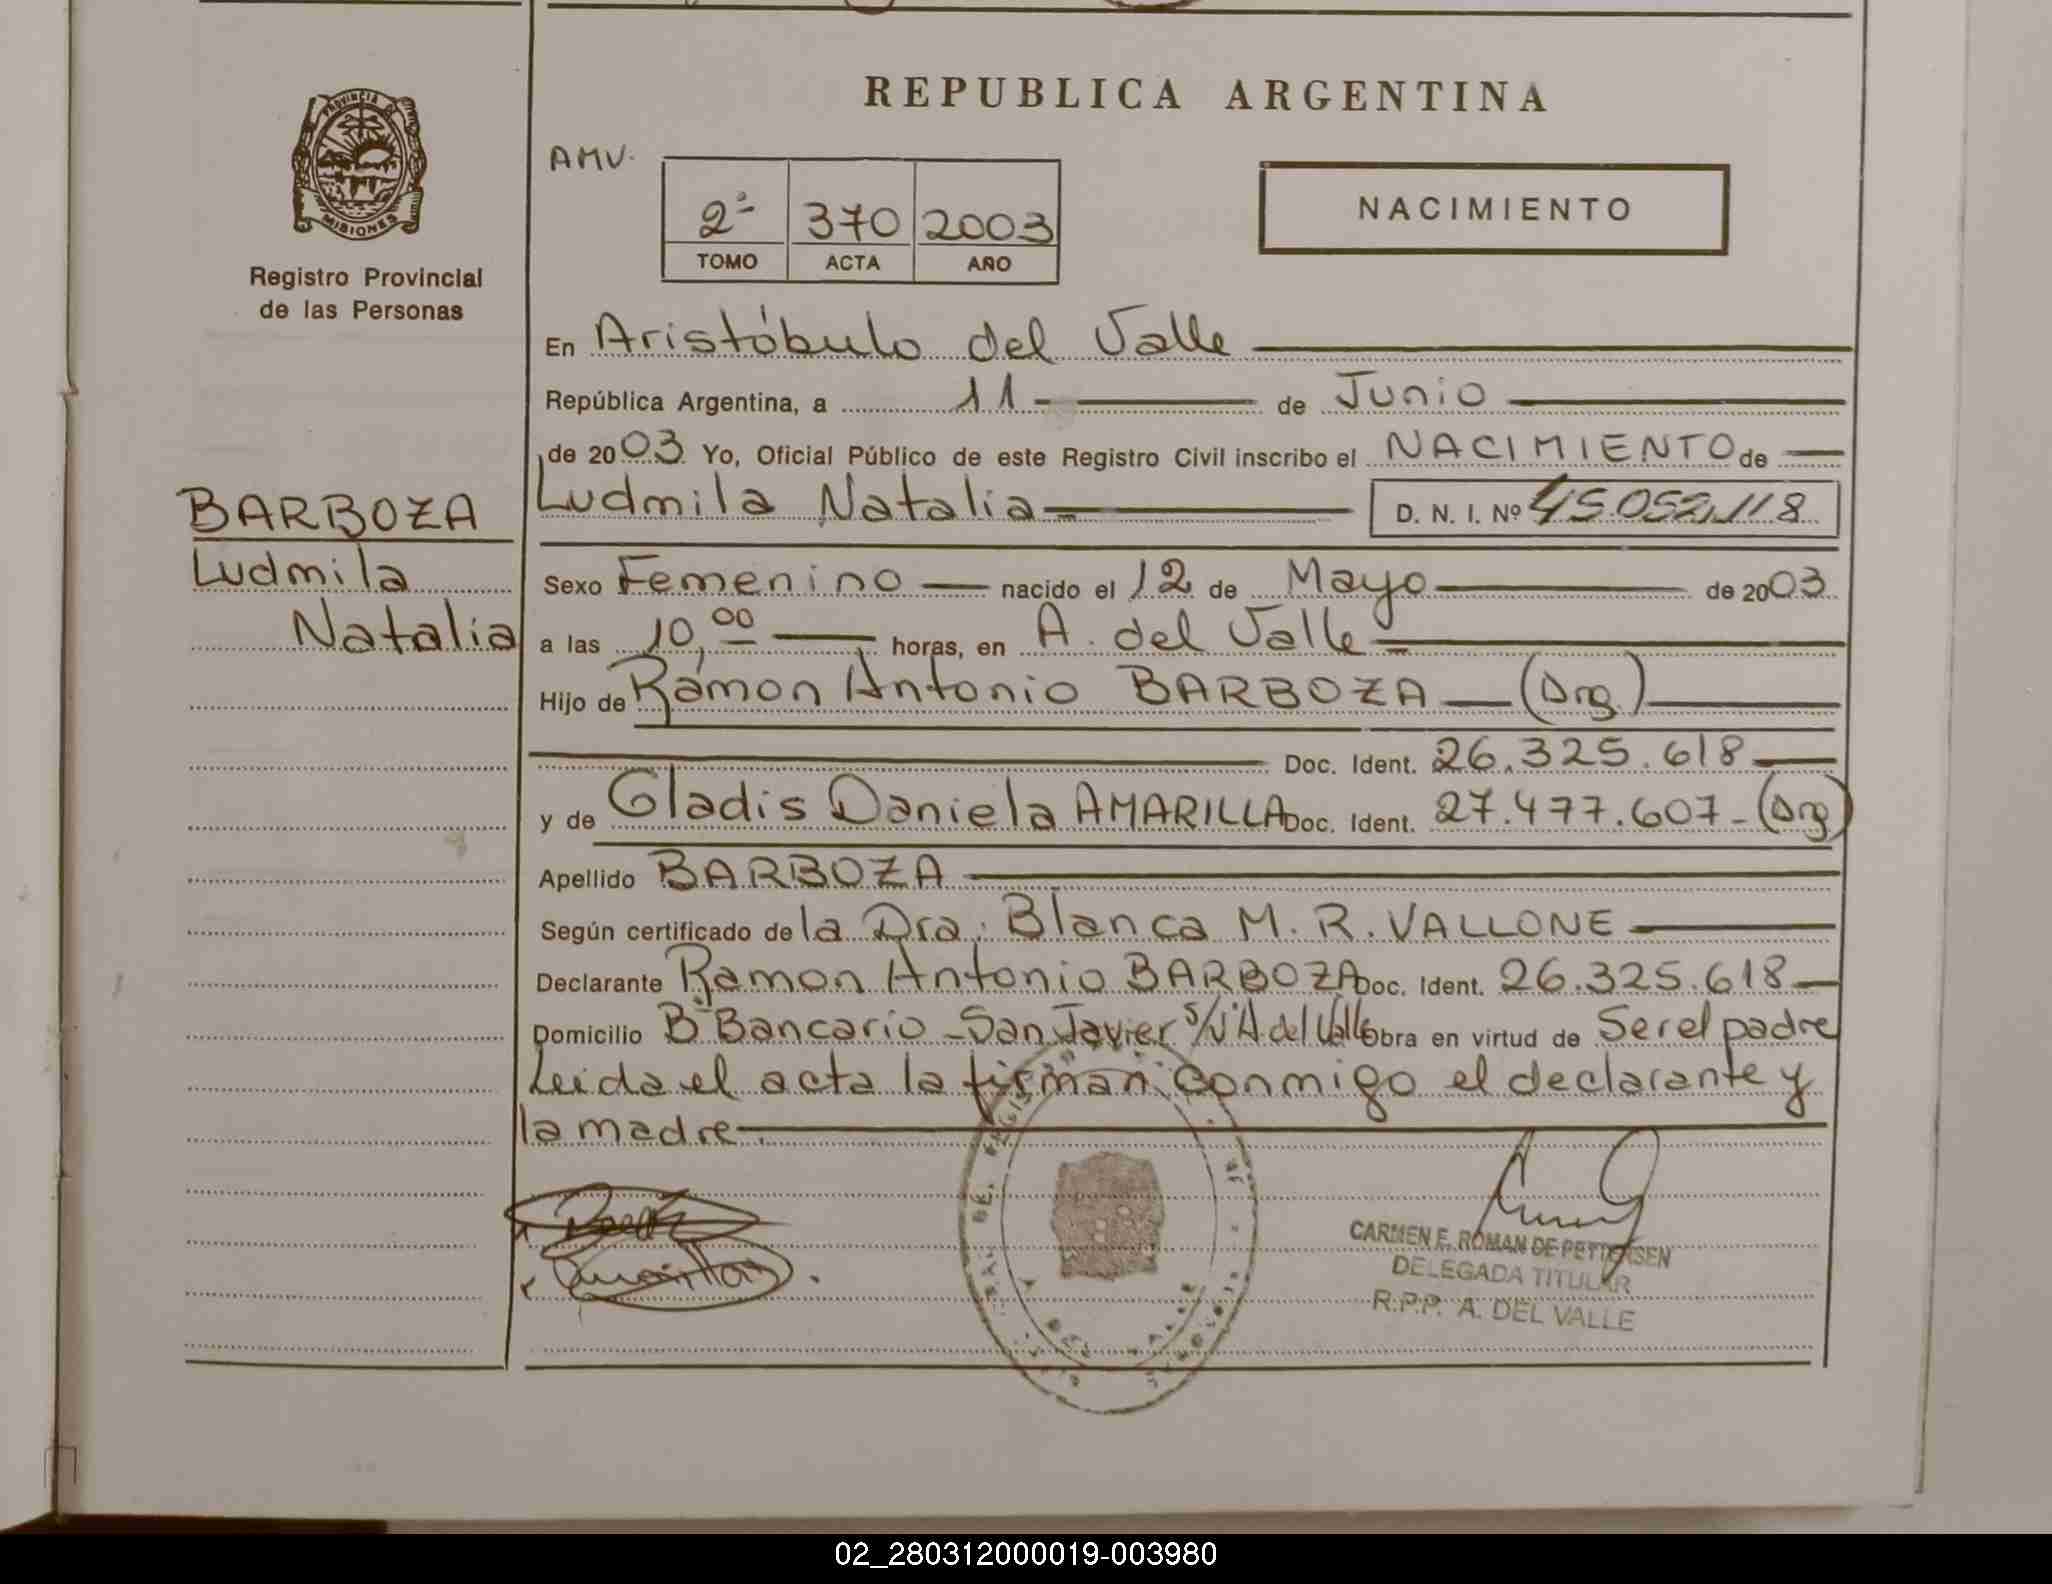 PROVINCIA DE
MISIONES
Registro Provincial
de las Personas
BARBOZA
Ludmila
Natalia
REPUBLICA ARGENTINA
AMV.
2º 370 2003
TOMO ACTA AÑO
NACIMIENTO
En Aristóbulo del Valle
República Argentina, a 11 de Junio
de 2003 Yo, Oficial Público de este Registro Civil inscribo el NACIMIENTO de
Ludmila Natalia D. N. I. Nº 45.052.118
Sexo Femenino nacido el 12 de Mayo de 2003
a las 10,00 horas, en A. del Valle
Hijo de Ramon Antonio BARBOZA (Arg.)
Doc. Ident. 26.325.618
y de Gladis Daniela AMARILLA Doc. Ident. 27.477.607 - (Arg)
Apellido BARBOZA
Según certificado de la Dra. Blanca M. R. VALLONE
Declarante Ramon Antonio BARBOZA Doc. Ident. 26.325.618
Domicilio Bº Bancario - San Javier S/Nº A. del Valle Obra en virtud de Ser el padre
Leida el acta la firman conmigo el declarante y
la madre.
CARMEN E. ROMAN DE PETTERSEN
DELEGADA TITULAR
R.P.P. A. DEL VALLE
02_280312000019-003980